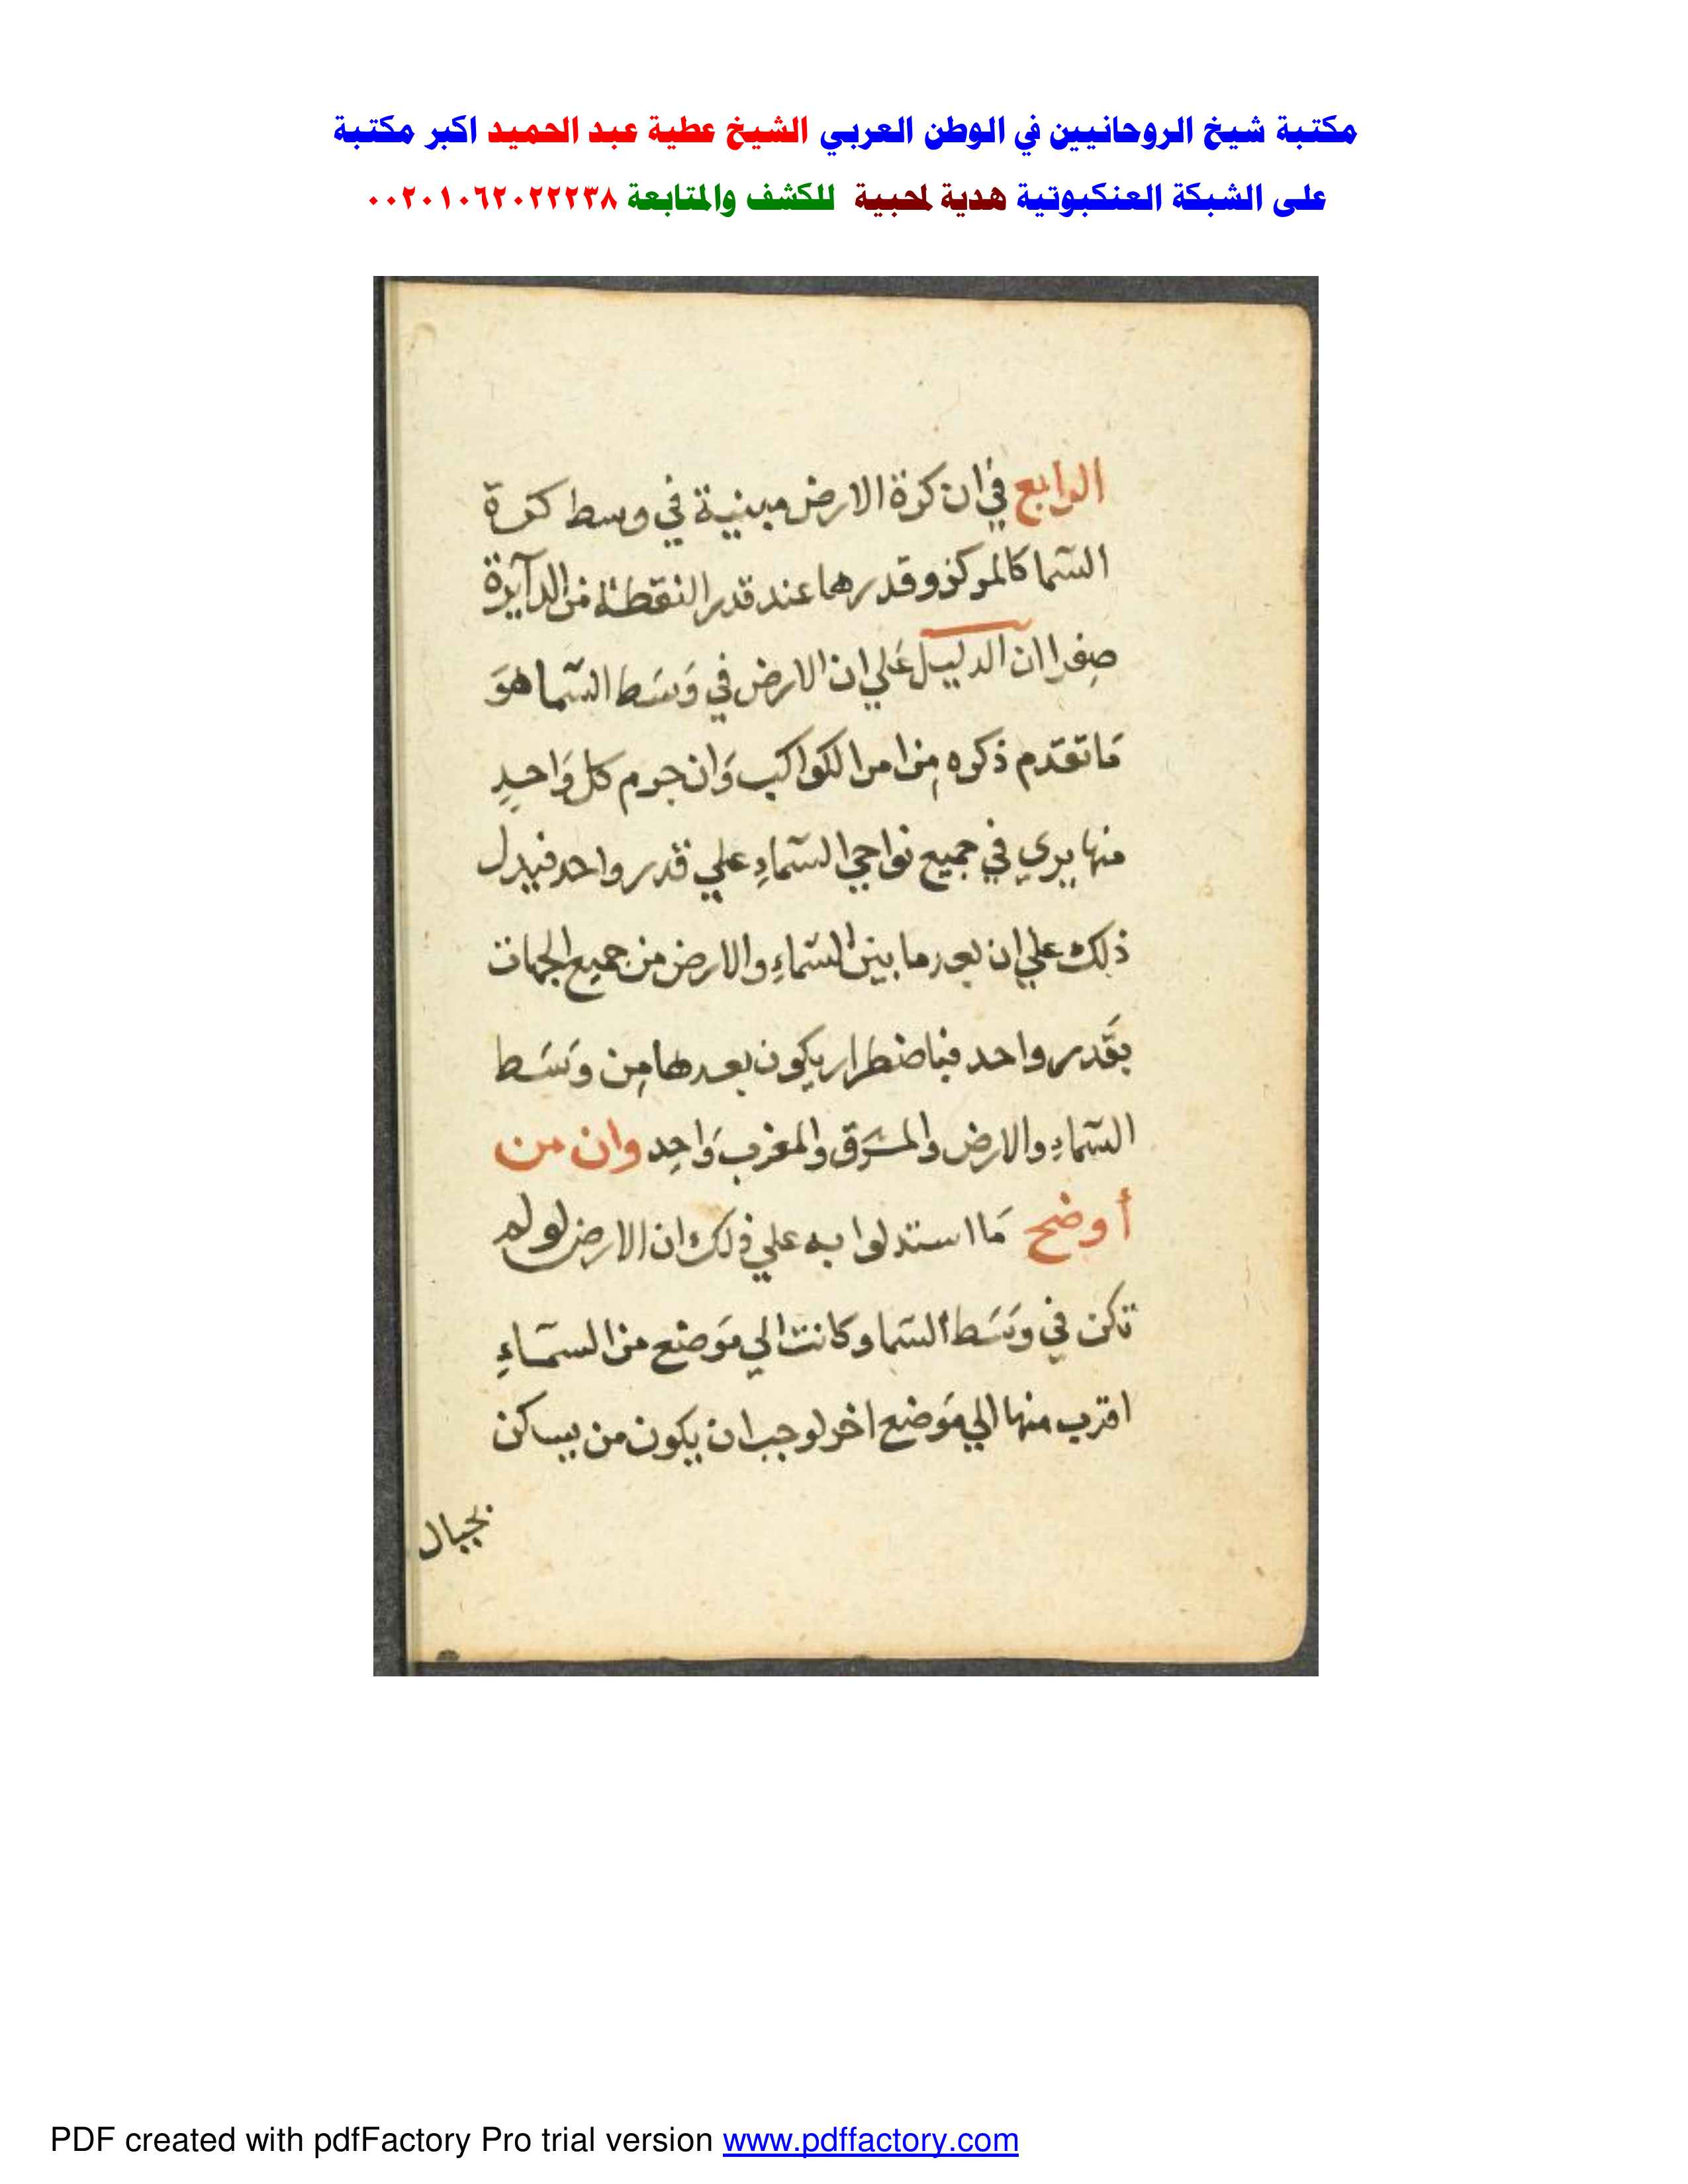 مكتبة شيخ الروحانيين في الوطن العربي الشيخ عطية عبد الحميد اكبر مكتبة
على الشبكة العنكبوتية هدية لمحبية للكشف والمتابعة ٠٠٢٠١٠٦٢٠٢٢٢٣٨
الرابع في ان كرة الارض مبنية في وسط كرة
السّما كالمركز وقدرها عند قدر النقطة من الدآيرة
صِغرا ان الدليل عَلي ان الارض في وَسَط السّما هوَ
مَا تقدّم ذكره مِن امر الكواكب وَان جرم كل وَاحدٍ
منها يري في جميع نواحي السّماءِ علي قدر واحد فيدل
ذلك علي ان بعد ما بين السّماءِ والارض من جميع الجهات
بقَدر واحد فباضطرار يكون بعدها مِن وَسَط
السّماءِ والارض والمشَرق والمغرب وَاحِد وان من
أوضح مَا استدلوا به علي ذلك ان الارض لو لم
تكن في وسَط السّما وكانت الي مَوضع من السّمَاءِ
اقرب منها الي مَوضع اخر لوجب ان يكون من يساكن
بجبال
PDF created with pdfFactory Pro trial version www.pdffactory.com